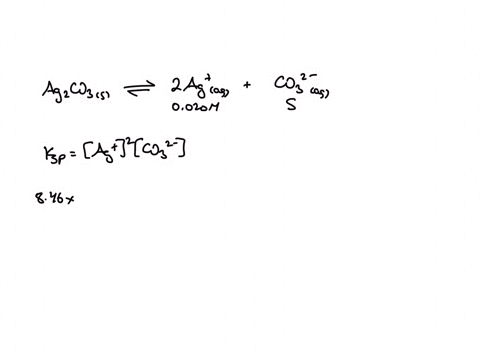 Ag₂CO₃(s) ⇌ 2Ag⁺(aq) + CO₃²⁻(aq)
0.020M S
Ksp = [Ag⁺]²[CO₃²⁻]
8.46x